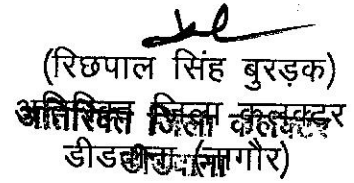 (रिछपाल सिंह बुरड़क)
अतिरिक्त जिला कलक्टर
डीडवाना (नागौर)